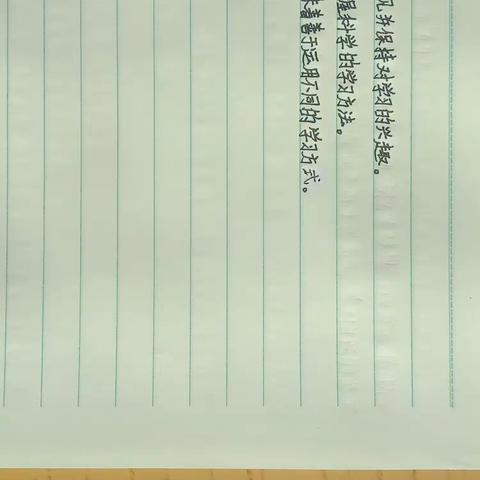 并保持对学习的兴趣。
科学的学习方法。
着善于运用不同的学习方式。